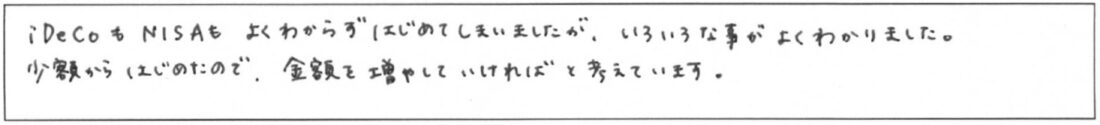 iDeCoもNISAもよくわからずはじめてしまいましたが、いろいろな事がよくわかりました。
少額からはじめたので、金額を増やしていければと考えています。